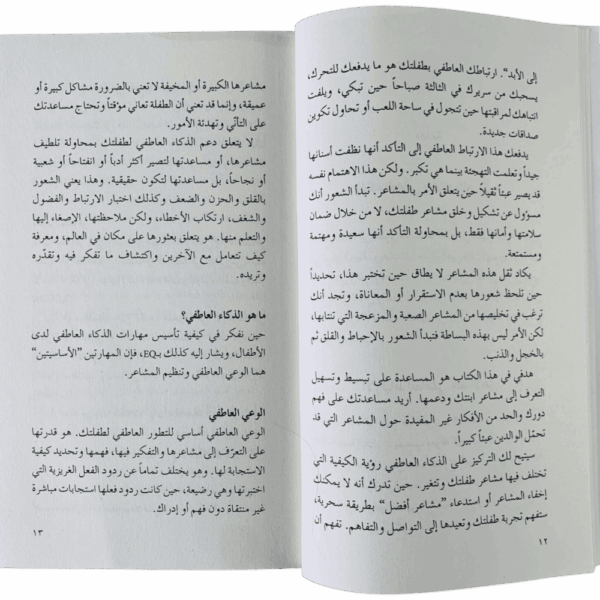 إلى الأبد". ارتباطك العاطفي بطفلتك هو ما يدفعك للتحرك،
يسحبك من سريرك في الثالثة صباحاً حين تبكي، ويلفت
انتباهك لمراقبتها حين تتجول في ساحة اللعب أو تحاول تكوين
صداقات جديدة.
يدفعك هذا الارتباط العاطفي إلى التأكد أنها نظفت أسنانها
جيداً وتعلمت التهجئة بينما هي تكبر. ولكن هذا الاهتمام نفسه
قد يصير عبئاً ثقيلاً حين يتعلق الأمر بالمشاعر. تبدأ الشعور أنك
مسؤول عن تشكيل وخلق مشاعر طفلتك، لا من خلال ضمان
سلامتها وأمانها فقط، بل بمحاولة التأكد أنها سعيدة ومهتمة
ومستمتعة.
يكاد ثقل هذه المشاعر لا يطاق حين تختبر هذا، تحديداً
حين تلحظ شعورها بعدم الاستقرار أو المعاناة، وتجد أنك
ترغب في تخليصها من المشاعر الصعبة والمزعجة التي تنتابها،
لكن الأمر ليس بهذه البساطة فتبدأ الشعور بالإحباط والقلق ثم
بالخجل والذنب.
هدفي في هذا الكتاب هو المساعدة على تبسيط وتسهيل
التعرف إلى مشاعر ابنتك ودعمها. أريد مساعدتك على فهم
دورك والحد من الأفكار غير المفيدة حول المشاعر التي قد
تحمّل الوالدين عبئاً كبيراً.
سيتيح لك التركيز على الذكاء العاطفي رؤية الكيفية التي
تختلف فيها مشاعر طفلتك وتتغير. حين تدرك أنه لا يمكنك
إخفاء المشاعر أو استدعاء "مشاعر أفضل" بطريقة سحرية،
ستفهم تجربة طفلتك وتعيدها إلى التواصل والتفاهم. تفهم أن
١٢
مشاعرها الكبيرة أو المخيفة لا تعني بالضرورة مشاكل كبيرة أو
عميقة، وإنما قد تعني أن الطفلة تعاني مؤقتاً وتحتاج مساعدتك
على التأنّي وتهدئة الأمور.
لا يتعلق دعم الذكاء العاطفي لطفلتك بمحاولة تلطيف
مشاعرها، أو مساعدتها لتصير أكثر أدباً أو انفتاحاً أو شعبية
أو نجاحاً، بل مساعدتها لتكون حقيقية. وهذا يعني الشعور
بالقلق والحزن والضعف وكذلك اختبار الارتباط والفضول
والشغف، ارتكاب الأخطاء، ولكن ملاحظتها، الإصغاء إليها
والتعلم منها. هو يتعلق بعثورها على مكان في العالم، ومعرفة
كيف تتعامل مع الآخرين واكتشاف ما تفكر فيه وتقدّره
وتريده.
ما هو الذكاء العاطفي؟
حين نفكر في كيفية تأسيس مهارات الذكاء العاطفي لدى
الأطفال، ويشار إليه كذلك بـEQ، فإن المهارتين "الأساسيتين"
هما الوعي العاطفي وتنظيم المشاعر.
الوعي العاطفي
الوعي العاطفي أساسي للتطور العاطفي لطفلتك. هو قدرتها
على التعرّف إلى مشاعرها والتفكير فيها، فهمها وتحديد كيفية
الاستجابة لها. وهو يختلف تماماً عن ردود الفعل الغريزية التي
اختبرتها وهي رضيعة، حين كانت ردود فعلها استجابات مباشرة
غير منتقاة دون فهم أو إدراك.
١٣